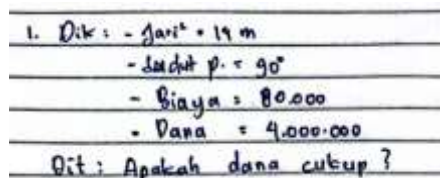 1. Dik : - Jari² = 14 m
- Sudut p. = 90°
- Biaya = 80.000
- Dana = 4.000.000
Dit : Apakah dana cukup ?